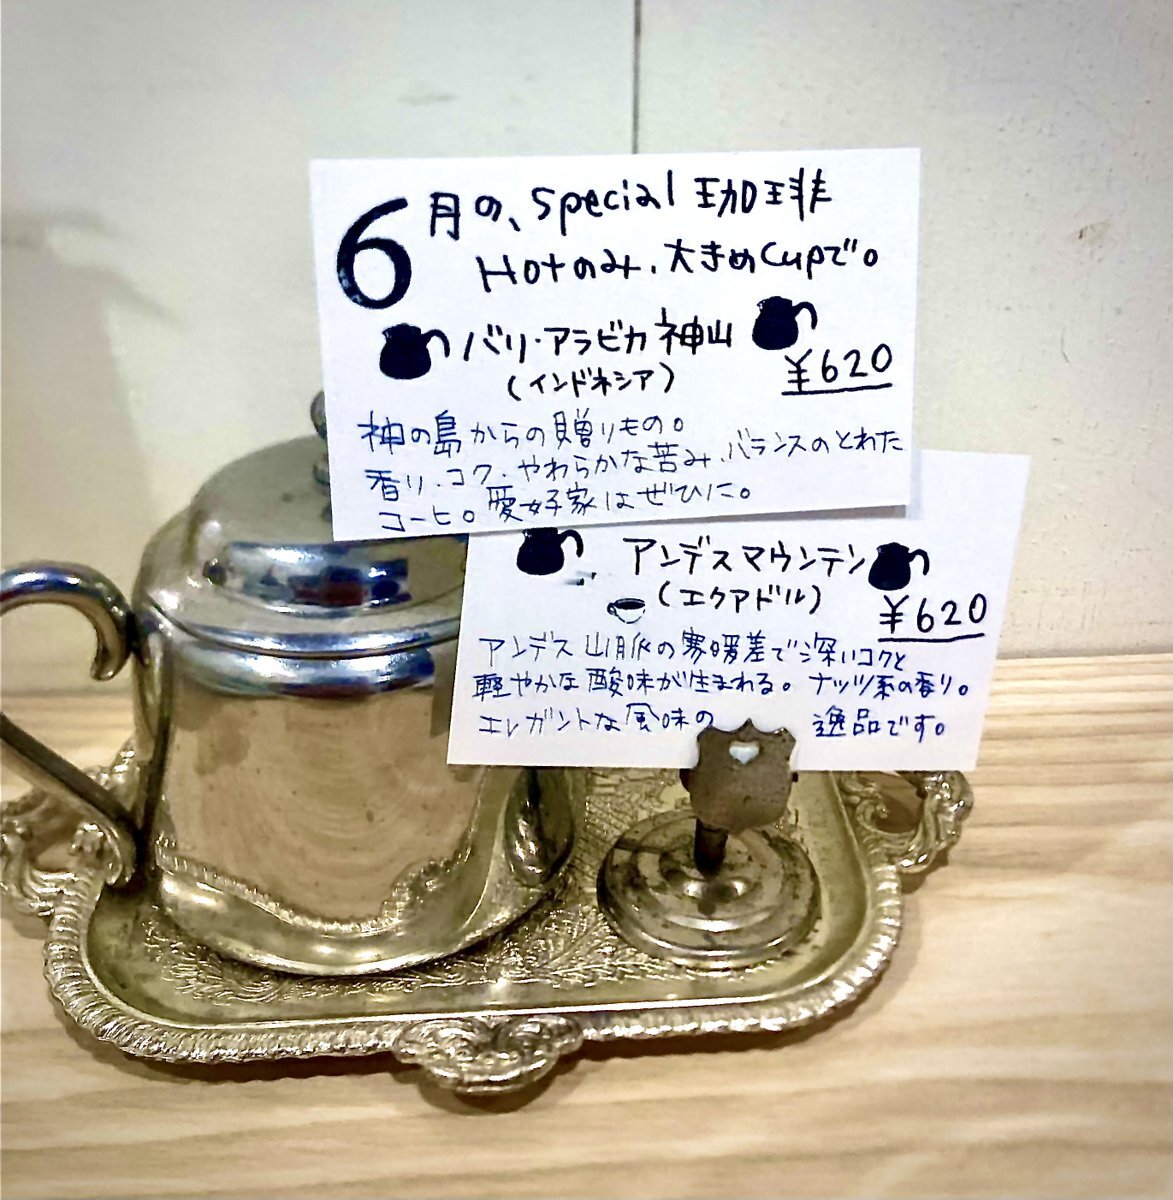 6月の、special 珈琲
Hotのみ、大きめcupで。
バリ・アラビカ神山
(インドネシア)
¥620
神の島からの贈りもの。
香り、コク、やわらかな苦み、バランスのとれた
コーヒ。愛好家はぜひに。
アンデスマウンテン
(エクアドル)
¥620
アンデス山脈の寒暖差で深いコクと
軽やかな酸味が生まれる。ナッツ系の香り。
エレガントな風味の 逸品です。